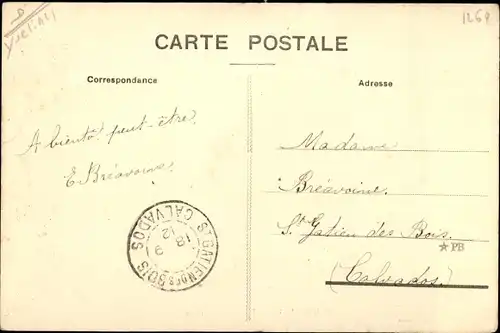 1269
CARTE POSTALE
Correspondance
Adresse
A bientôt peut-être
E. Bréavoine
Madame
Bréavoine
St Gatien des Bois
★PB
(Calvados.)
ST GATIEN DES BOIS CALVADOS
18
12
9